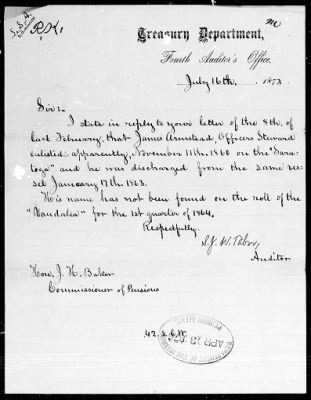 m
L.S.A.
R.K.
Treasury Department,
Fourth Auditor's Office.
July 16th. 1873
Sir:
I state in reply to your letter of the 8th. of
last February, that James Armstead, Officers Steward
enlisted apparently, November 11th. 1860 on the "Sara-
toga" and he was discharged from the same ves-
sel January 17th. 1863.
His name has not been found on the roll of the
"Vandalia" for the 1st quarter of 1864.
Respectfully.
S.J.W. Tabor,
Auditor
Hon. J. H. Baker
Commissioner of Pensions
PENSION OFFICE
APR 23
DEPARTMENT OF THE INTERIOR